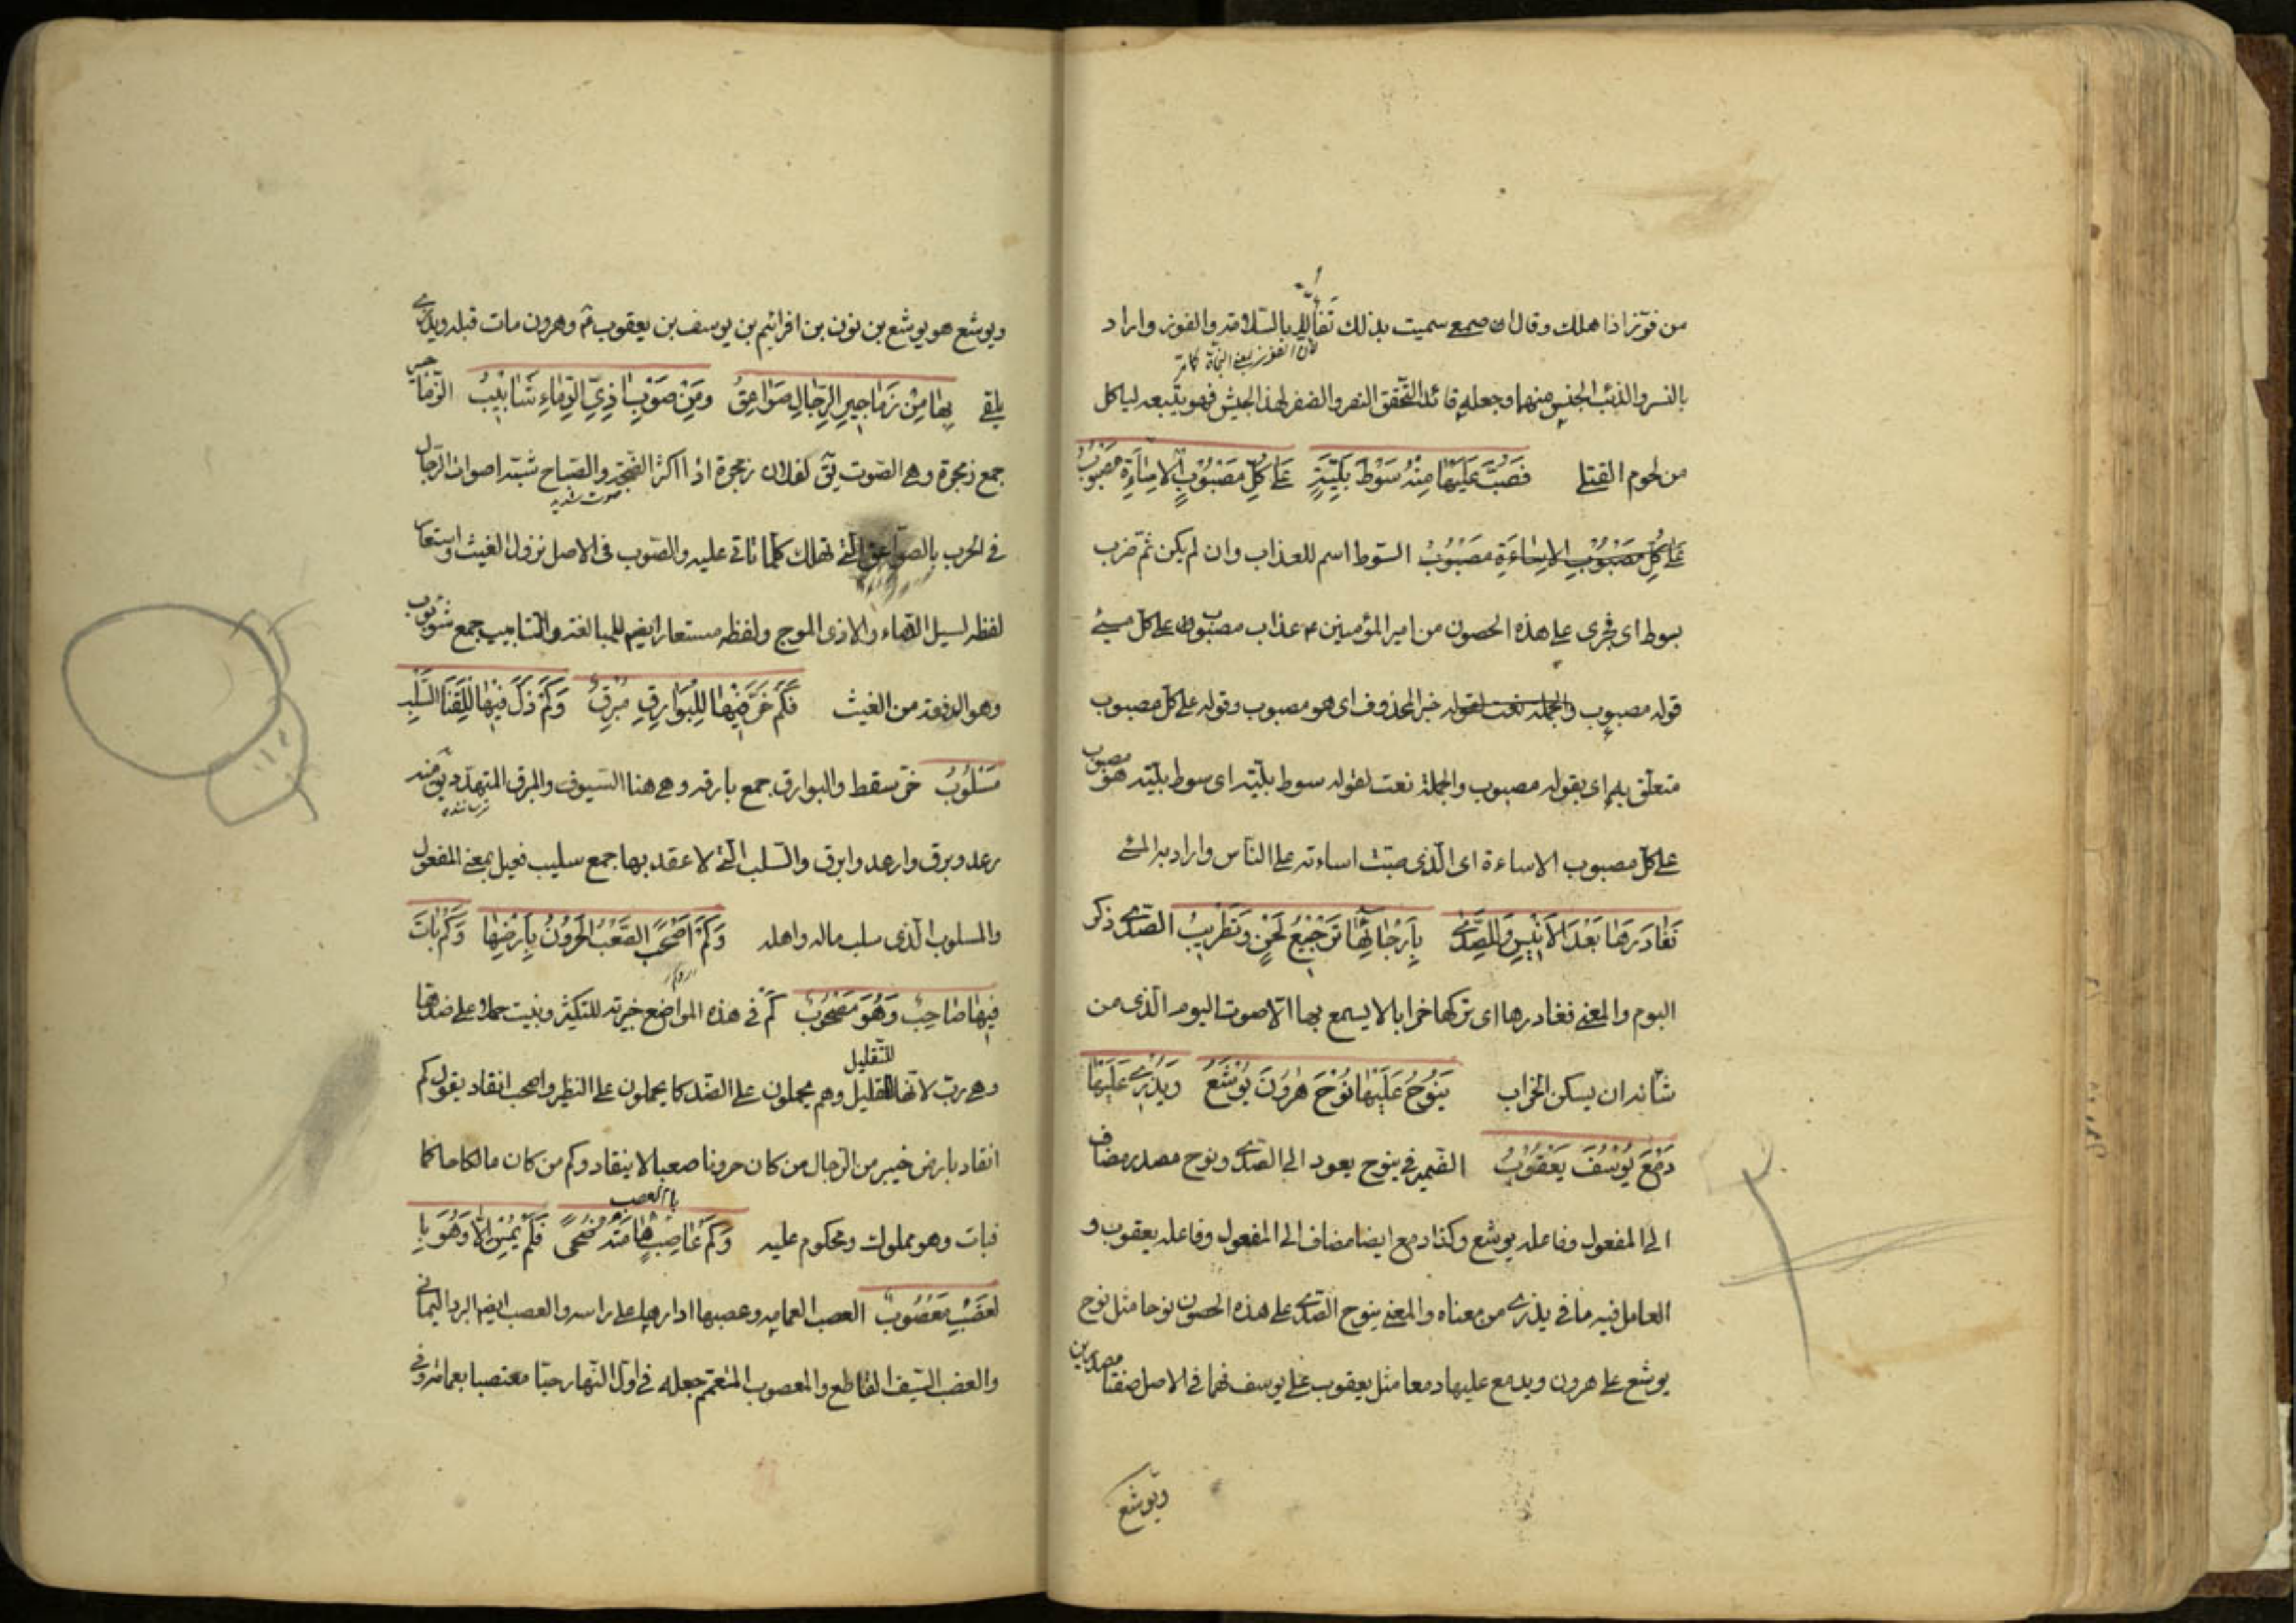 من فوّز اذا هلك وقال الاصمعى سميت بذلك تفألا بالسّلامة والفوز واراد
لان الفوز بمعنى النجاة
بالنسر والذئب الجنس منهما وجعله قائدا لتحقق النصر والضفر لهذا الجيش فهو يتبعه لياكل
من لحوم القتلى فَصَبَّ عَلَيْهَا مِنْهُ سَوْطَ بَلِيَّةٍ عَلى كُلِّ مَصْبُوْبِ الاِسَاءَةِ مَصْبُوْبُ
عَلى كُلِّ مَصْبُوْبِ الاِسَاءَةِ مَصْبُوْبُ السّوط اسم للعذاب وان لم يكن ثمّ ضرب
بسوط اى فجرى على هذه الحصون من امير المؤمنين ع عذاب مصبوب على كل مسئ
قوله مصبوب والجملة نعت لقوله خبر المحذوف اى هو مصبوب وقوله على كل مصبوب
متعلّق به اى بقوله مصبوب والجملة نعت لقوله سوط بليّة اى سوط بليّة هو مصبوب
على كلّ مصبوب الاساءة اى الّذى صبّت اساءته على النّاس واراد به المسئ
فَغَادَرَهَا بَعْدَ الاَنِيْسِ وَلِلصَّدٰى بِاَرْجَائِهَا تَرْجِيْعُ لَحْنٍ وَتَطْرِيْبُ الصّدى ذكر
البوم والمعنى فغادرها اى تركها خرابا لا يسمع بها الّا صوت البوم الّذى من
شأنه ان يسكن الخراب يَنُوْحُ عَلَيْهَا نَوْحَ هٰرُوْنَ يُوْشَعُ وَيَذْرِى عَلَيْهَا
دَمْعَ يُوْسُفَ يَعْقُوْبُ الضّمير فى ينوح يعود الى الصّدى ونوح مصدر مضاف
الى المفعول وفاعله يوشع وكذا دمع ايضا مضاف الى المفعول وفاعله يعقوب و
العامل فيه ما فى يذرى من معناه والمعنى ينوح الصّدى على هذه الحصون نوحا مثل نوح
يوشع على هرون ويدمع عليها دمعا مثل يعقوب على يوسف فهما فى الاصل صفتا مصدرين
ويوشع
ويوشع هو يوشع بن نون بن افرائيم بن يوسف بن يعقوب ع وهرون مات قبله ويذرى
يلقى بِهَا مِنْ زَمَاجِيْرِ الرِّجَالِ صَوَاعِقُ وَمِنْ صَوْبِ اٰذِىِّ الدِّمَاءِ شَاٰبِيْبُ الزّماجير
جمع زمجرة وهى الصّوت يق لفلان زمجرة اذا اكثر الضّجّة والصّياح شبّه اصوات الرّجال
صوت شديد
فى الحرب بالصّواعق الّتى تهلك كلّما تاتى عليه والصّوب فى الاصل نزول الغيث واستعار
لفظه لسيل الدّماء والاذى الموج ولفظه مستعار ايضم للمبالغة والشّابيب جمع شؤبوب
وهو الدفعة من الغيث فَكَمْ خَرَّ فِيْهَا لِلْبَوَارِقِ مُبْرِقُ وَكَمْ ذَلَّ فِيْهَا لِلْقَنَا السُّلُبِ
مَسْلُوْبُ خرّ سقط والبوارق جمع بارقة وهى هنا السّيوف والمبرق المتهدّد يق منه
ترساننده
رعد وبرق وارعد وابرق والسّلب الّتى لا عقد بها جمع سليب فعيل بمعنى المفعول
والمسلوب الّذى سلب ماله واهله وَكَمْ اَصْحَبَ الصَّعْبُ الْحَرُوْنُ بِاَرْضِهَا وَكَمْ بَاتَ
فِيْهَا صَاحِبٌ وَهُوَ مَصْحُوْبُ كَمْ فى هذه المواضع خبرية للتكثير وبنيت حملا على ضدّها
وهى ربّ لانّها للتقليل وهم يحملون على الضّد كما يحملون على النظير واصحب انقاد يقول كم
للتّقليل
انقاد بارض خيبر من الرّجال من كان حرونا صعبا لا ينقاد وكم من كان مالكا حاكما
فبات وهو مملوك ومحكوم عليه وَكَمْ عَاصِبٍ هَامَتَهُ ضُحىً فَلَمْ يُمْسِ اِلَّا وَهُوَ بِا
لعَضْبِ مَعْصُوْبُ العصب العمامه وعصبها ادارها على راسه والعصب ايضم البرد اليمانى
والعضب السّيف القاطع والمعصوب المتعمّم جعله فى اوّل النّهار حيّا معتصبا بعمامته وفى